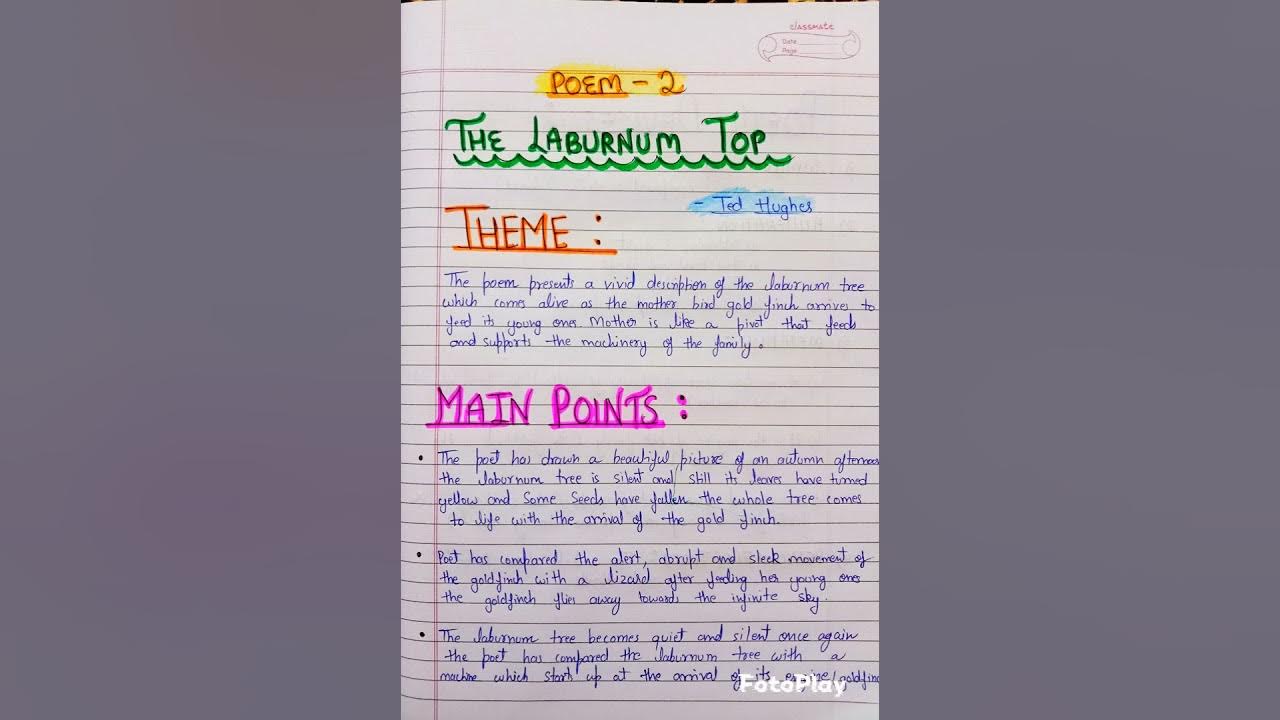 classmate
Date
Page
POEM - 2
THE LABURNUM TOP
- Ted Hughes
THEME :
The poem presents a vivid description of the laburnum tree
which comes alive as the mother bird gold finch arrives to
feed its young ones. Mother is like a pivot that feeds
and supports the machinery of the family.
MAIN POINTS :
• The poet has drawn a beautiful picture of an autumn afternoon
the laburnum tree is silent and still its leaves have turned
yellow and some seeds have fallen the whole tree comes
to life with the arrival of the gold finch.
• Poet has compared the alert, abrupt and sleek movement of
the goldfinch with a lizard after feeding her young ones
the goldfinch flies away towards the infinite sky.
• The laburnum tree becomes quiet and silent once again
the poet has compared the laburnum tree with a
machine which starts up at the arrival of its engine/goldfinc
FotoPlay